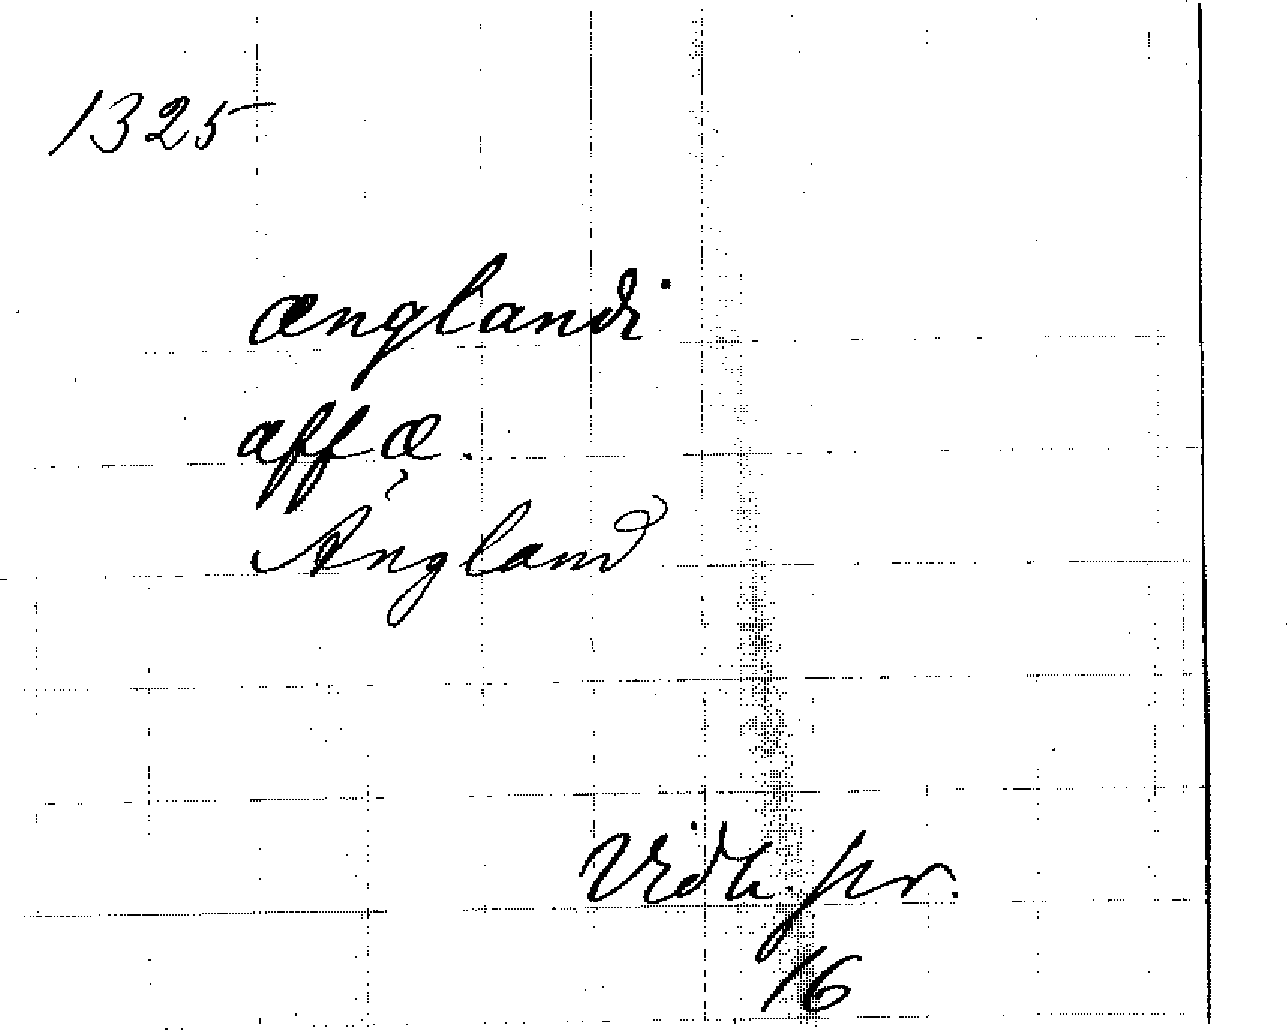 1325
ænglandi
aff æ.
Ængland
Vidh. pr.
16